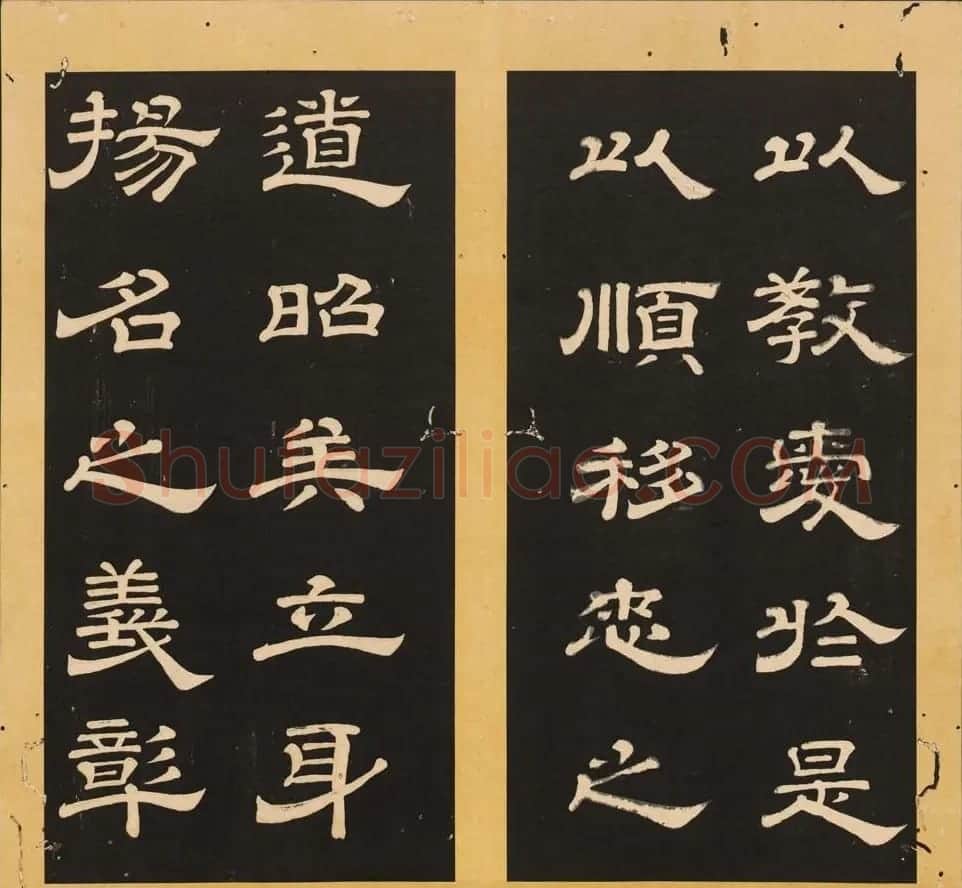 以教愛於是
以順移忠之
道昭矣立身
揚名之義彰
Shufaziliao.COM